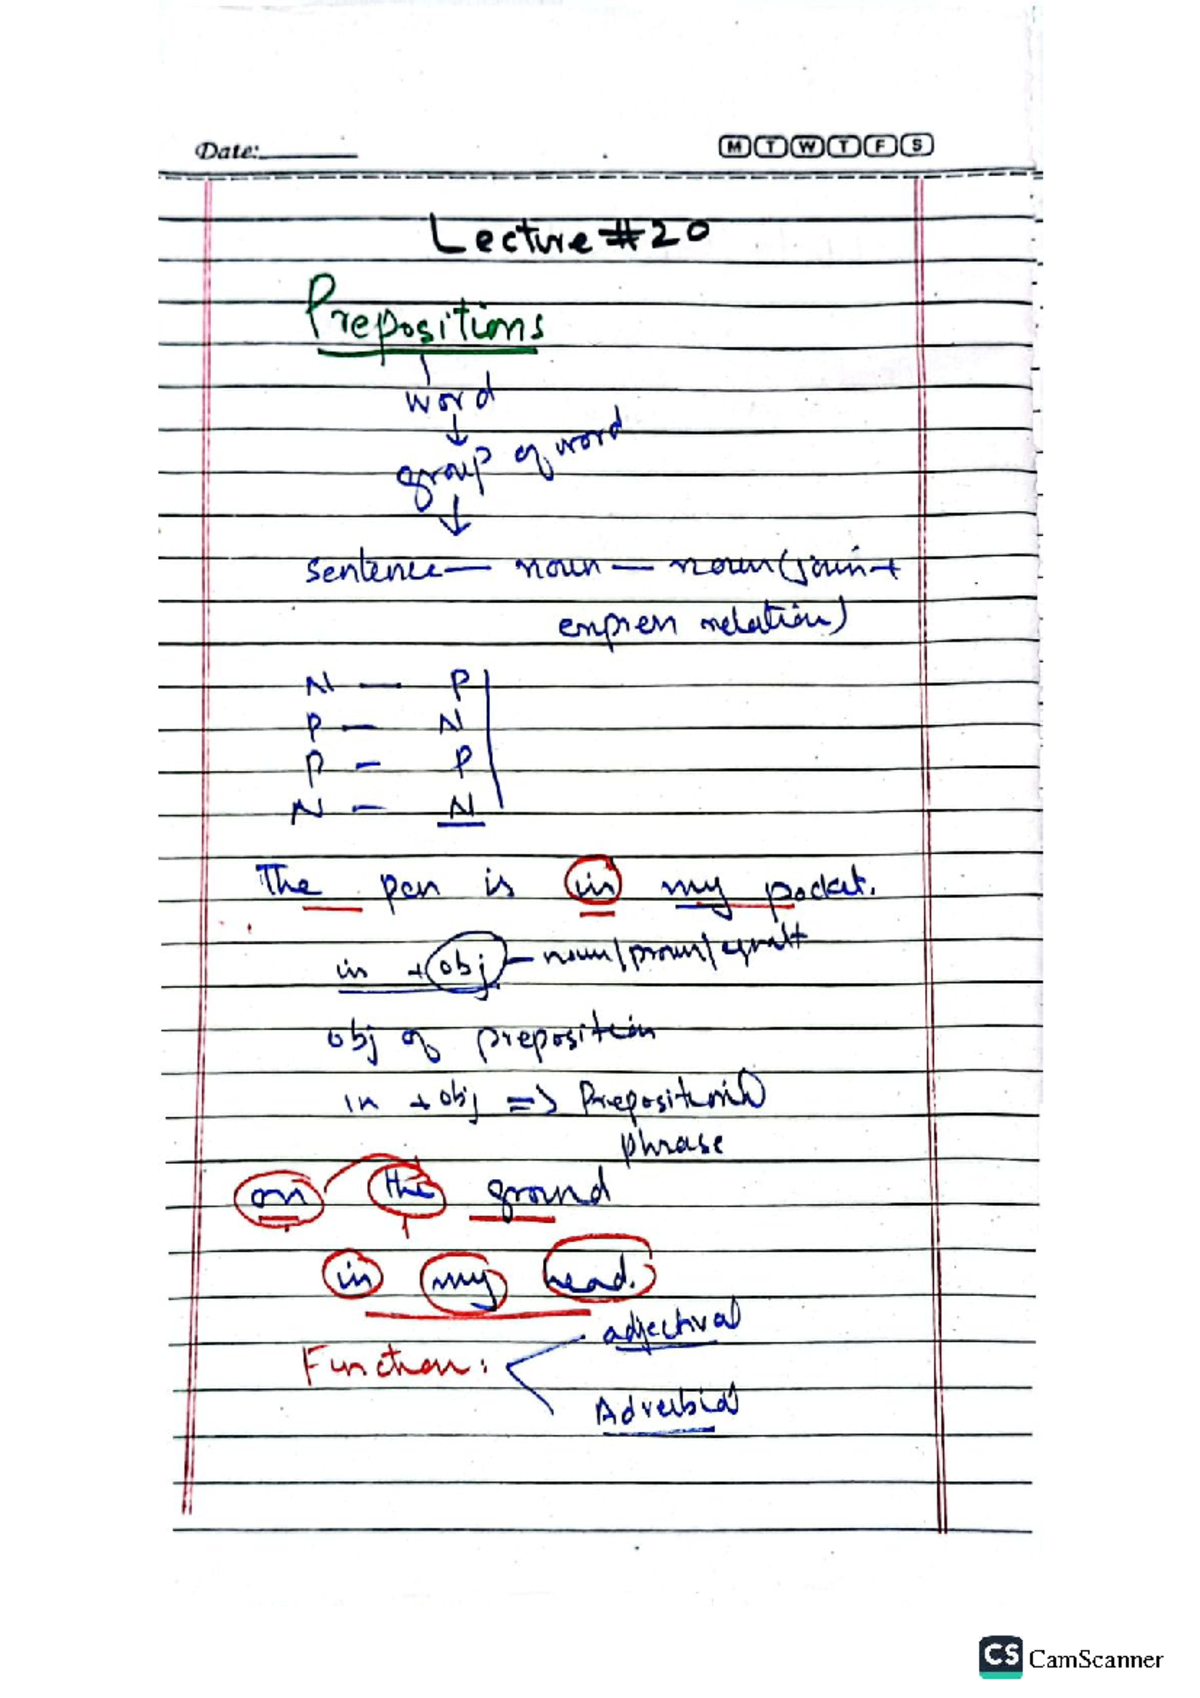 Date:
M T W T F S
Lecture #20
Prepositions
word
↓
group of word
↓
sentence — noun — noun (join +
express relation)
N — P
P — N
P — P
N — N
The pen is in my pocket.
in + obj — noun/pronun/
obj of preposition
in + obj => Prepositional
phrase
on the ground
in my head.
Function:
adjectival
Adverbial
CS CamScanner